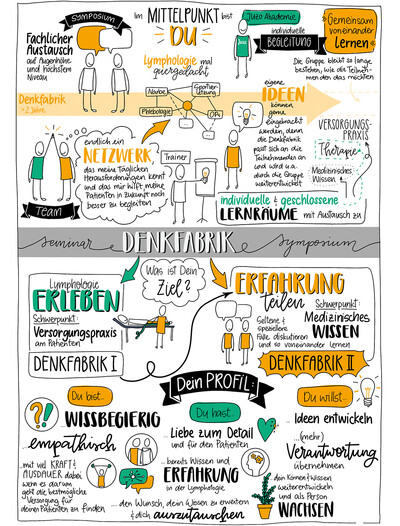 SYMPOSIUM
Fachlicher
Austausch
auf Augenhöhe
und höchstem
Niveau
Im MITTELPUNKT bist
DU
Lymphologie mal
quergedacht
Juzo Akademie
individuelle
BEGLEITUNG
Gemeinsam
voneinander
lernen
Die Gruppe bleibt so lange
bestehen, wie die Teilneh-
menden das möchten
Denkfabrik
~ 2 Jahre
Narbe
Sportler-
Phlebologie
OPs
eigene
IDEEN
können
gerne
eingebracht
werden, denn
die Denkfabrik
passt sich an die
Teilnehmenden an
und wird u.a.
durch die Gruppe
weiterentwickelt
VERSORGUNGS-
PRAXIS
Therapie
Medizinisches
Wissen
TEAM
endlich ein
NETZWERK,
das meine täglichen
Herausforderungen kennt
und das mir hilft, meine
Patienten in Zukunft noch
besser zu begleiten
Trainer
individuelle & geschlossene
LERNRÄUME mit Austausch zu
seminar DENKFABRIK symposium
Lymphologie
ERLEBEN
Schwerpunkt:
Versorgungspraxis
am Patienten
DENKFABRIK I
Was ist Dein
Ziel?
ERFAHRUNG
teilen
Seltene &
spezielle
Fälle diskutieren
und so voneinander lernen
Schwerpunkt:
Medizinisches
WISSEN
DENKFABRIK II
Dein PROFIL:
Du bist...
?!
WISSBEGIERIG
empathisch
...mit viel KRAFT &
AUSDAUER dabei,
wenn es darum
geht die bestmögliche
Versorgung für
deinen Patienten zu finden
Du hast...
Liebe zum Detail
und für den Patienten
...bereits Wissen und
ERFAHRUNG
in der Lymphologie
...den Wunsch, dein Wissen zu erweitern
& dich auszutauschen
Du willst...
Ideen entwickeln
... (mehr)
Verantwortung
übernehmen
...dein Können & Wissen
weiterentwickeln
und als Person
WACHSEN